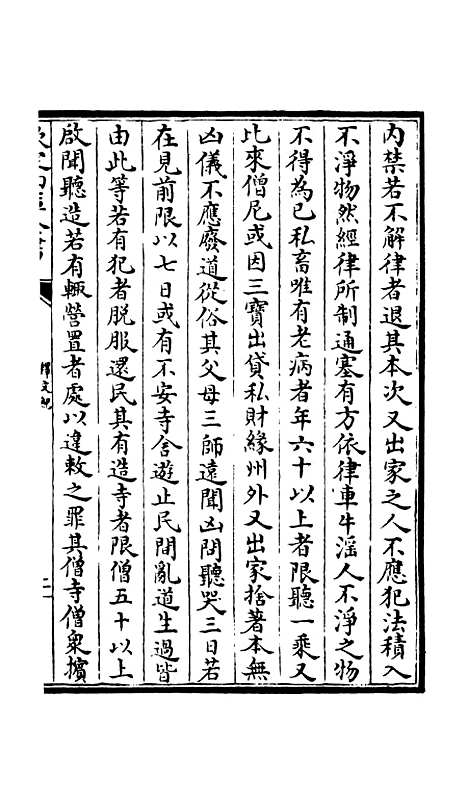 內禁若不解律者退其本次又出家之人不應犯法積入
不淨物然經律所制通塞有方依律車牛淫人不淨之物
不得為已私畜唯有老病者年六十以上者限聽一乘又
比來僧尼或因三寶出貸私財緣州外又出家捨著本無
凶儀不應廢道從俗其父母三師遠聞凶問聽哭三日若
在見前限以七日或有不安寺舍遊止民間亂道生過皆
由此等若有犯者脫服還民其有造寺者限僧五十以上
啟聞聽造若有輙營置者處以違敕之罪其僧寺僧衆擯
欽定四庫全書
釋文紀